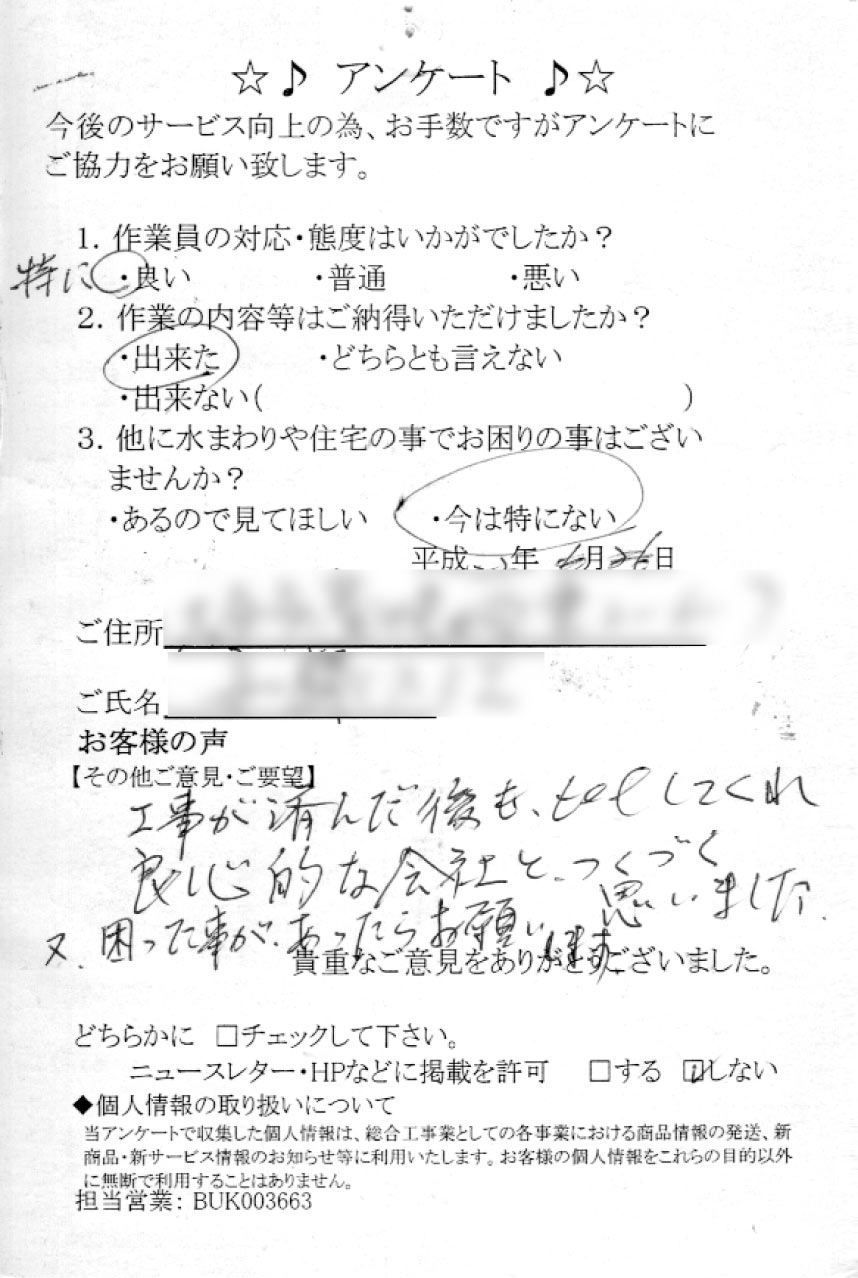 ☆♪ アンケート ♪☆
今後のサービス向上の為、お手数ですがアンケートに
ご協力をお願い致します。
1. 作業員の対応・態度はいかがでしたか?
特に ・良い ・普通 ・悪い
2. 作業の内容等はご納得いただけましたか?
・出来た ・どちらとも言えない
・出来ない( )
3. 他に水まわりや住宅の事でお困りの事はござい
ませんか?
・あるので見てほしい ・今は特にない
平成 年 月 日
ご住所
ご氏名
お客様の声
【その他ご意見・ご要望】
工事が済んだ後も、telしてくれ
良心的な会社と、つくづく
思いました。
又、困った事が、あったらお願いします
貴重なご意見をありがとうございました。
どちらかに □チェックして下さい。
ニュースレター・HPなどに掲載を許可 □する □しない
◆個人情報の取り扱いについて
当アンケートで収集した個人情報は、総合工事業としての各事業における商品情報の発送、新
商品・新サービス情報のお知らせ等に利用いたします。お客様の個人情報をこれらの目的以外
に無断で利用することはありません。
担当営業: BUK003663